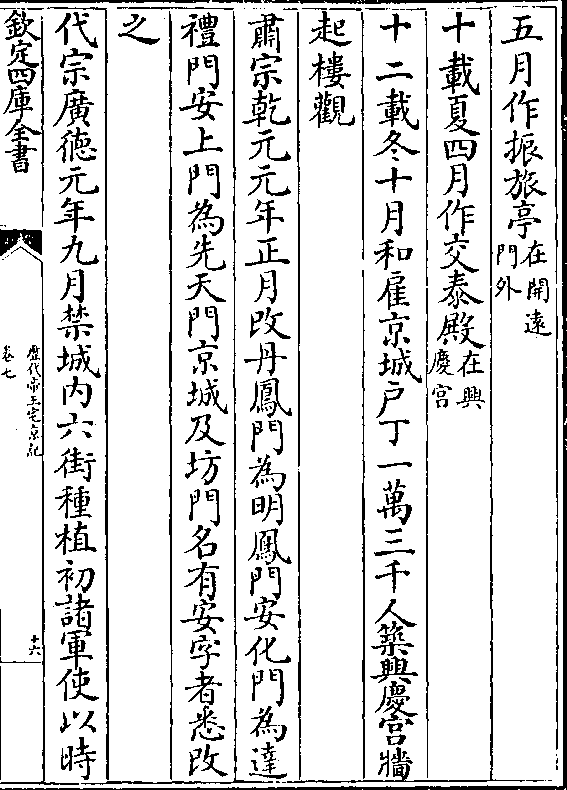 五月作振旅亭在開遠門外
十載夏四月作交泰殿在興慶宮
十二載冬十月和雇京城户丁一萬三千人築興慶宮牆
起樓觀
肅宗乾元元年正月改丹鳳門為明鳳門安化門為達
禮門安上門為先天門京城及坊門名有安字者悉改
之
代宗廣徳元年九月禁城内六街種植初諸軍使以時
欽定四庫全書
歴代帝王宅京記
卷七
十六